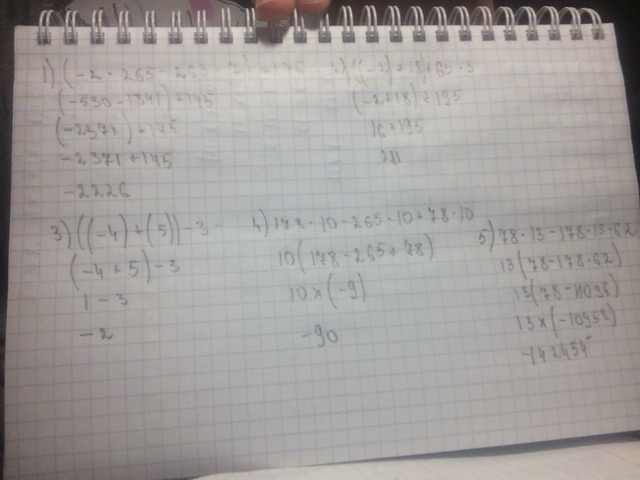 1) (-2 · 265 - 263 · 7) + 145
(-530 - 1841) + 145
(-2371) + 145
-2371 + 145
-2226
2) ((-2) + 18) + 65 · 3
(-2 + 18) + 195
16 + 195
211
3) ((-4) + (5)) - 3
(-4 + 5) - 3
1 - 3
-2
4) 178 · 10 - 265 · 10 + 78 · 10
10(178 - 265 + 78)
10 × (-9)
-90
5) 78 · 13 - 178 · 13 · 62
13(78 - 178 · 62)
13(78 - 11036)
13 × (-10958)
-142454